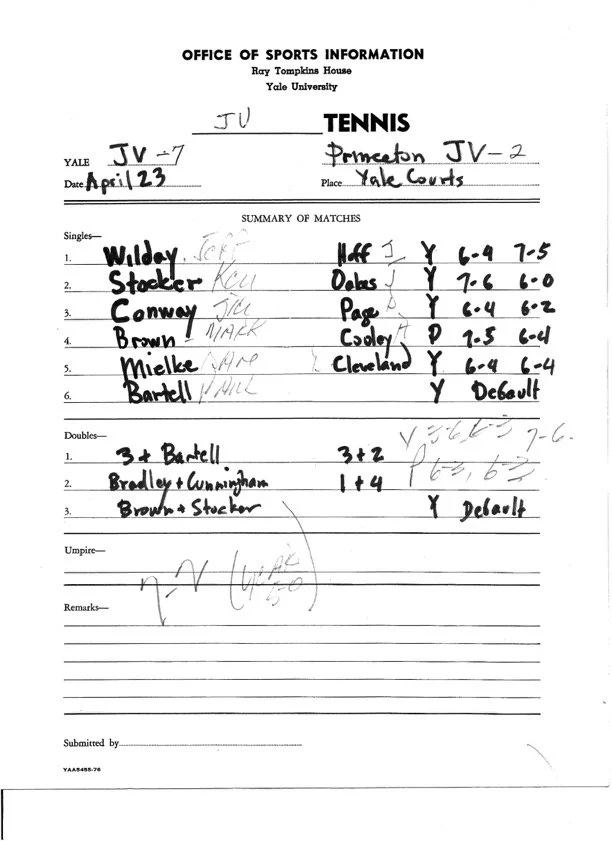 OFFICE OF SPORTS INFORMATION
Ray Tompkins House
Yale University
JV TENNIS
YALE JV-7 Princeton JV-2
Date April 23 Place Yale Courts
SUMMARY OF MATCHES
Singles—
1. Wilday Jeff Hoff Y 6-4 7-5
2. Stocker Oakes J Y 7-6 6-0
3. Conway Page Y 6-4 6-2
4. Brown - MARK Cooley P 7-5 6-4
5. Mielke Cleveland Y 6-4 6-4
6. Bartell Y Default
Doubles—
1. 3 + Bartell 3 + 2 Y 3-6, 6-3 7-6.
2. Bradley + Cunningham 1 + 4 P 6-3, 6-3
3. Brown + Stocker Y Default
Umpire—
(YEAR
5-0)
Remarks—
Submitted by
YAA5455-76